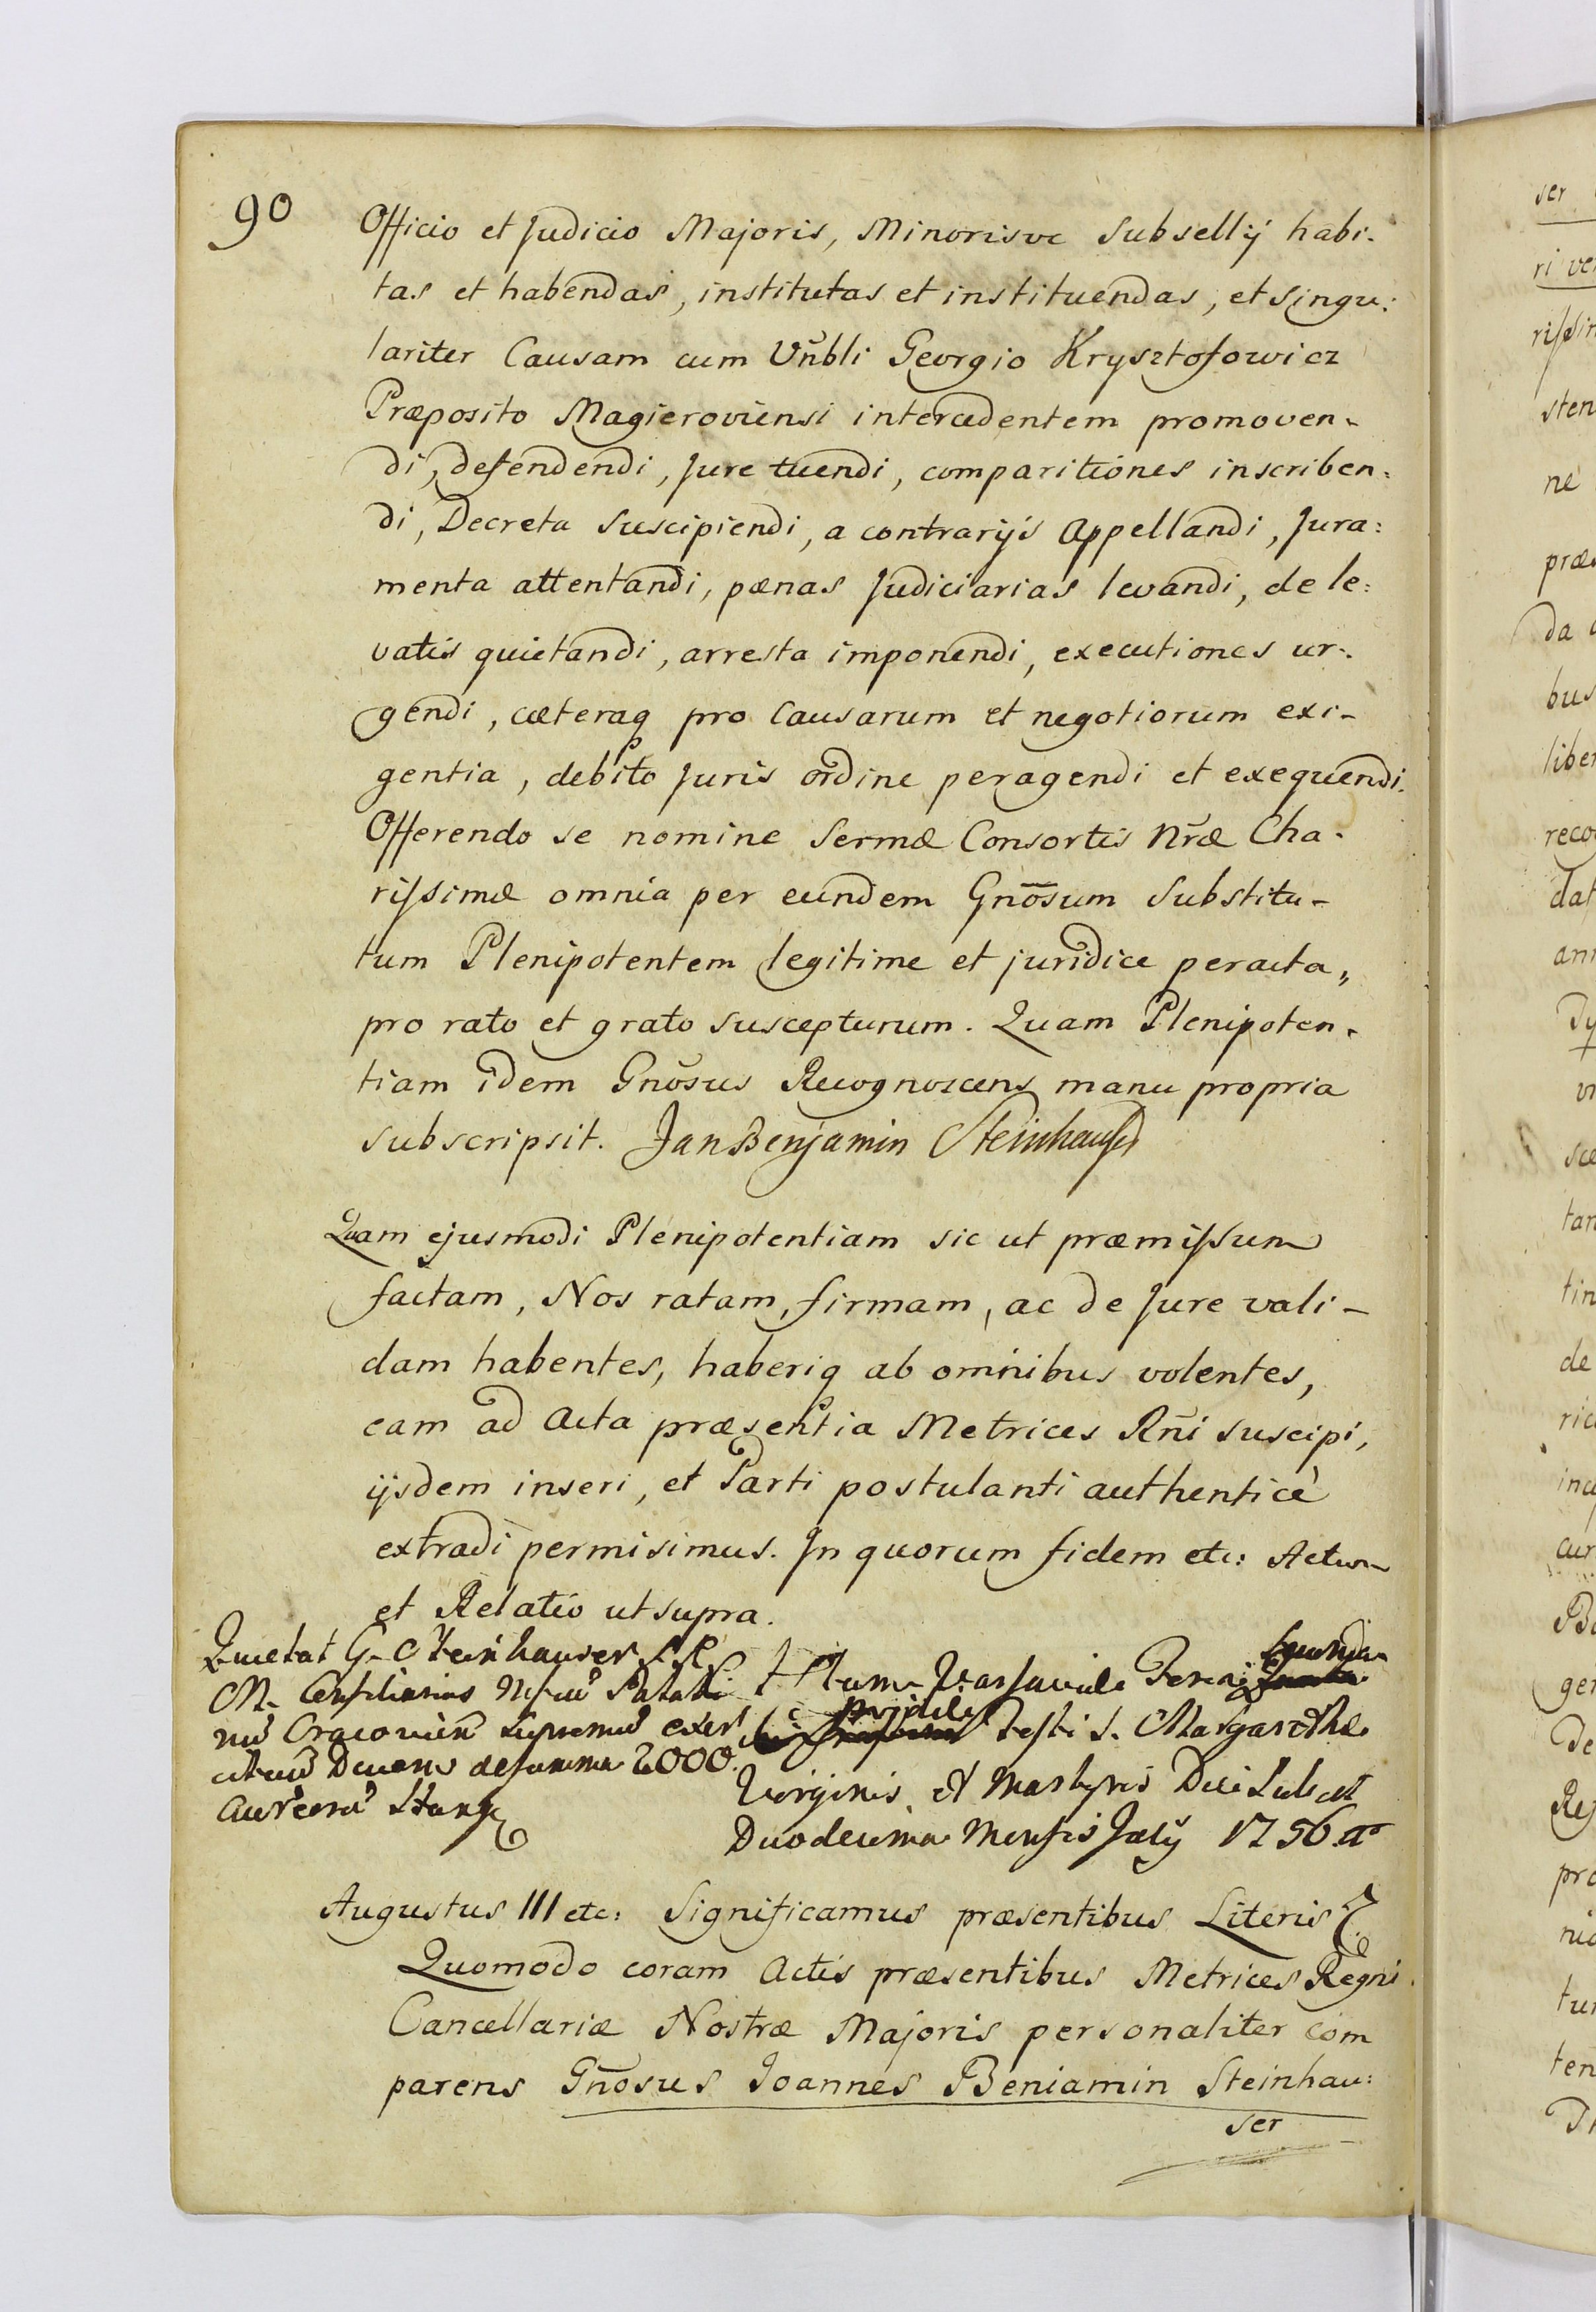 90
Officio et Judicio Majoris, Minorisve Subsellij habi-
tas et habendas, institutas et instituendas, et singu:
lariter Causam cum Vñbli Georgio Krysztofowicz
Præposito Magieroviensi intercedentem promoven-
di, defendendi, Jure tuendi, comparitiones inscriben:
di, Decreta suscipiendi, a contrarijs Appellandi, Jura:
menta attentandi, pænas Judiciarias levandi, de le:
vatis quietandi, arresta imponendi, executiones ur-
gendi, cæteraq pro Causarum et negotiorum exi-
gentia, debito Juris ordine peragendi et exequendi.
Offerendo se nomine Sermæ Consortis Nræ Cha-
rissimæ omnia per eundem Gnõsum Substitu-
tum Plenipotentem legitime et juridice peracta,
pro rato et grato suscepturum. Quam Plenipoten-
tiam idem Gnõsus Recognoscens manu propria
subscripsit. Jan Benjamin Steinhauser
Quam ejusmodi Plenipotentiam sic ut præmissum
factam, Nos ratam, firmam, ac de Jure vali-
dam habentes, haberiq ab omnibus volentes,
eam ad Acta præsentia Metrices Rñi suscipi,
ijsdem inseri, et Parti postulanti authenticè
extradi permisimus. In quorum fidem etc: Actum
et Relatio ut supra.
Quietat G. Steinhauser S. R.
M. Consiliarius
Cracovien supremus exer
de summa 2000.
Actum Varsaviæ Feria Secunda
pridie Festi S. Margarethæ
Virginis et Martyris Die
Duodecima Mensis July 1756 a
Augustus III etc: Significamus præsentibus Literis
Quomodo coram Actis præsentibus Metrices Regni
Cancellariæ Nostræ Majoris personaliter com
parens Gnõsus Joannes Beniamin Steinhau:
ser